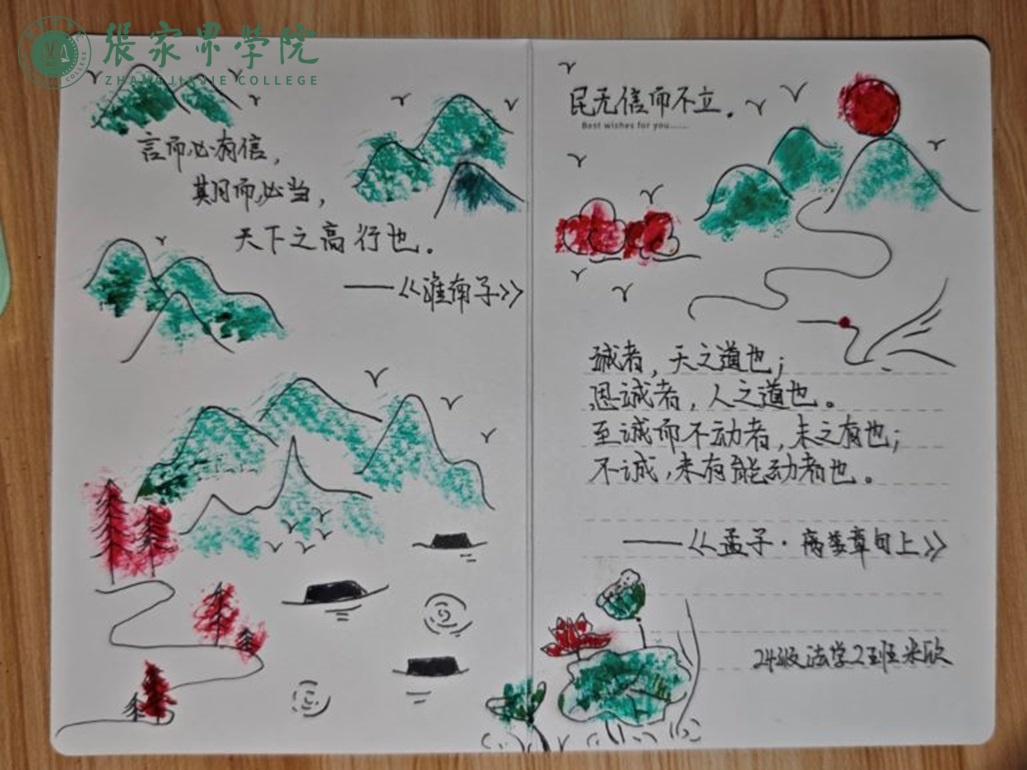 张家界学院
ZHANGJIAJIE COLLEGE
言而必有信，
期而必当，
天下之高行也。
——《淮南子》
民无信而不立。
Best wishes for you......
诚者，天之道也；
思诚者，人之道也。
至诚而不动者，未之有也；
不诚，未有能动者也。
——《孟子·离娄章句上》
24级法学2班米欣